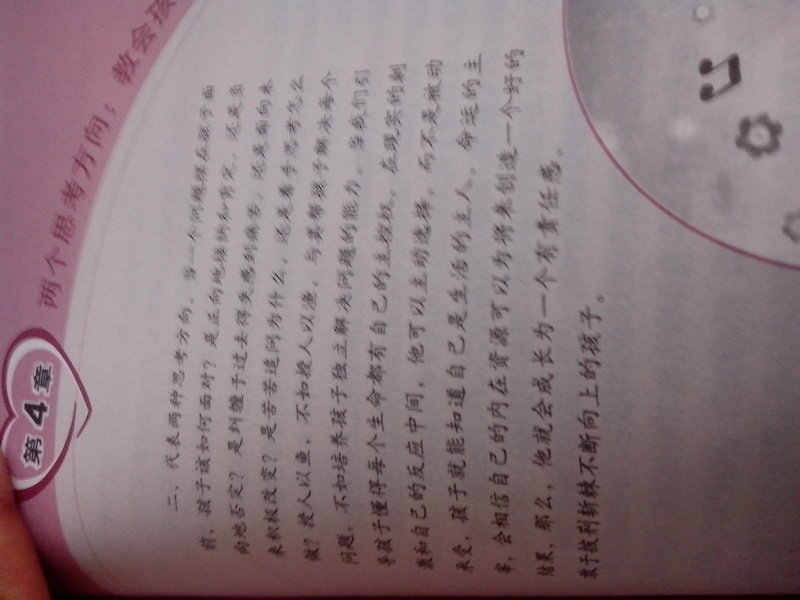 第4章
两个思考方向：教会孩
二，代表两种思考方向。当一个问题摆在孩子面
前，孩子该如何面对？是正向地接纳和肯定，还是负
向地否定？是纠缠于过去得失感到痛苦，还是面向未
来积极改变？是苦苦追问为什么，还是着手思考怎么
做？授人以鱼，不如授人以渔。与其帮孩子解决每个
问题，不如培养孩子独立解决问题的能力。当我们引
导孩子懂得每个生命都有自己的主控权，在现实的刺
激和自己的反应中间，他可以主动选择，而不是被动
承受，孩子就能知道自己是生活的主人，命运的主
宰，会相信自己的内在资源可以为将来创造一个好的
结果，那么，他就会成长为一个有责任感、
敢于披荆斩棘不断向上的孩子。